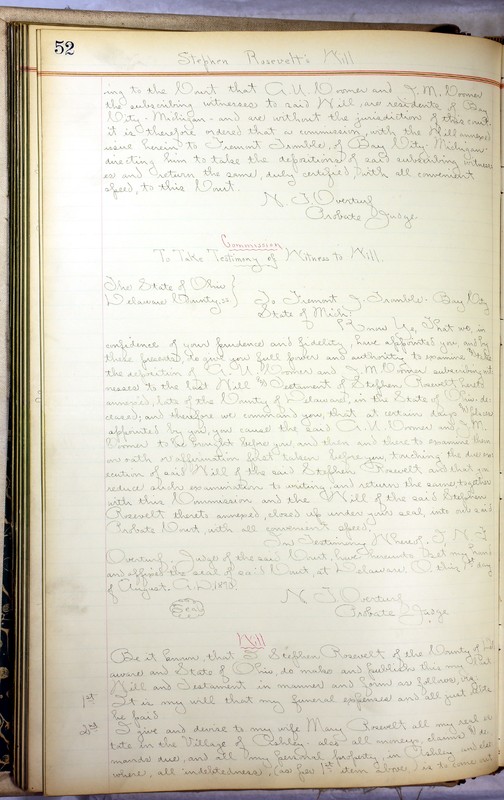 52
Stephen Rosevelt's Will
ing to the Court that A. U. Conner and J. M. Conner
the subscribing witnesses to said Will, are residents of Bay
City - Michigan - and are without the jurisdiction of this court
it is therefore ordered that a commission, with the Will annexed
issue herein to Fremont Tramble, of Bay City - Michigan
directing him to take the depositions of said subscribing witness
es and return the same, duly certified, with all convenient
speed, to this Court.
N. F. Overturf
Probate Judge
Commission
To Take Testimony of Witness to Will.
The State of Ohio }
Delaware County, ss } To Fremont J. Tramble - Bay City
State of Mich.
Know Ye, That we, in
confidence of your prudence and fidelity, have appointed you, and by
these presents, do give you full power and authority to examine & take
the deposition of A. U. Conner and J. M. Conner subscribing wit
nesses to the last Will & Testament of Stephen Rosevelt, hereto
annexed, late of the County of Delaware, in the State of Ohio, de-
ceased; and therefore we command you, that at certain days & places
appointed by you, you cause the said A. U. Conner and J. M.
Conner to be brought before you and then and there to examine them
on oath or affirmation first taken before you, touching the due ex
ecution of said Will of the said Stephen Rosevelt and that you
reduce such examination to writing and return the same, together
with this Commission and the Will of the said Stephen
Rosevelt thereto annexed, closed up under your seal, into our said
Probate Court, with all convenient speed.
In Testimony Whereof, I, N. F.
Overturf, Judge of the said Court, have hereunto set my hand
and affixed the seal of said Court, at Delaware, O. this day
of August, A. D.
Seal
N. F. Overturf
Probate Judge
Will
Be it known, that I Stephen Rosevelt of the County of Del
aware and State of Ohio, do make and publish this my last
Will and Testament in manner and form as follows, viz:
1st It is my will that my funeral expenses and all just debts
be paid
2nd I give and devise to my wife Mary Rosevelt all my real es
tate in the Village of Ashley - also all moneys, claims & de
mands due, and all my personal property, in Ashley and else
where, all indebtedness, (as per 1st item above) is to come out